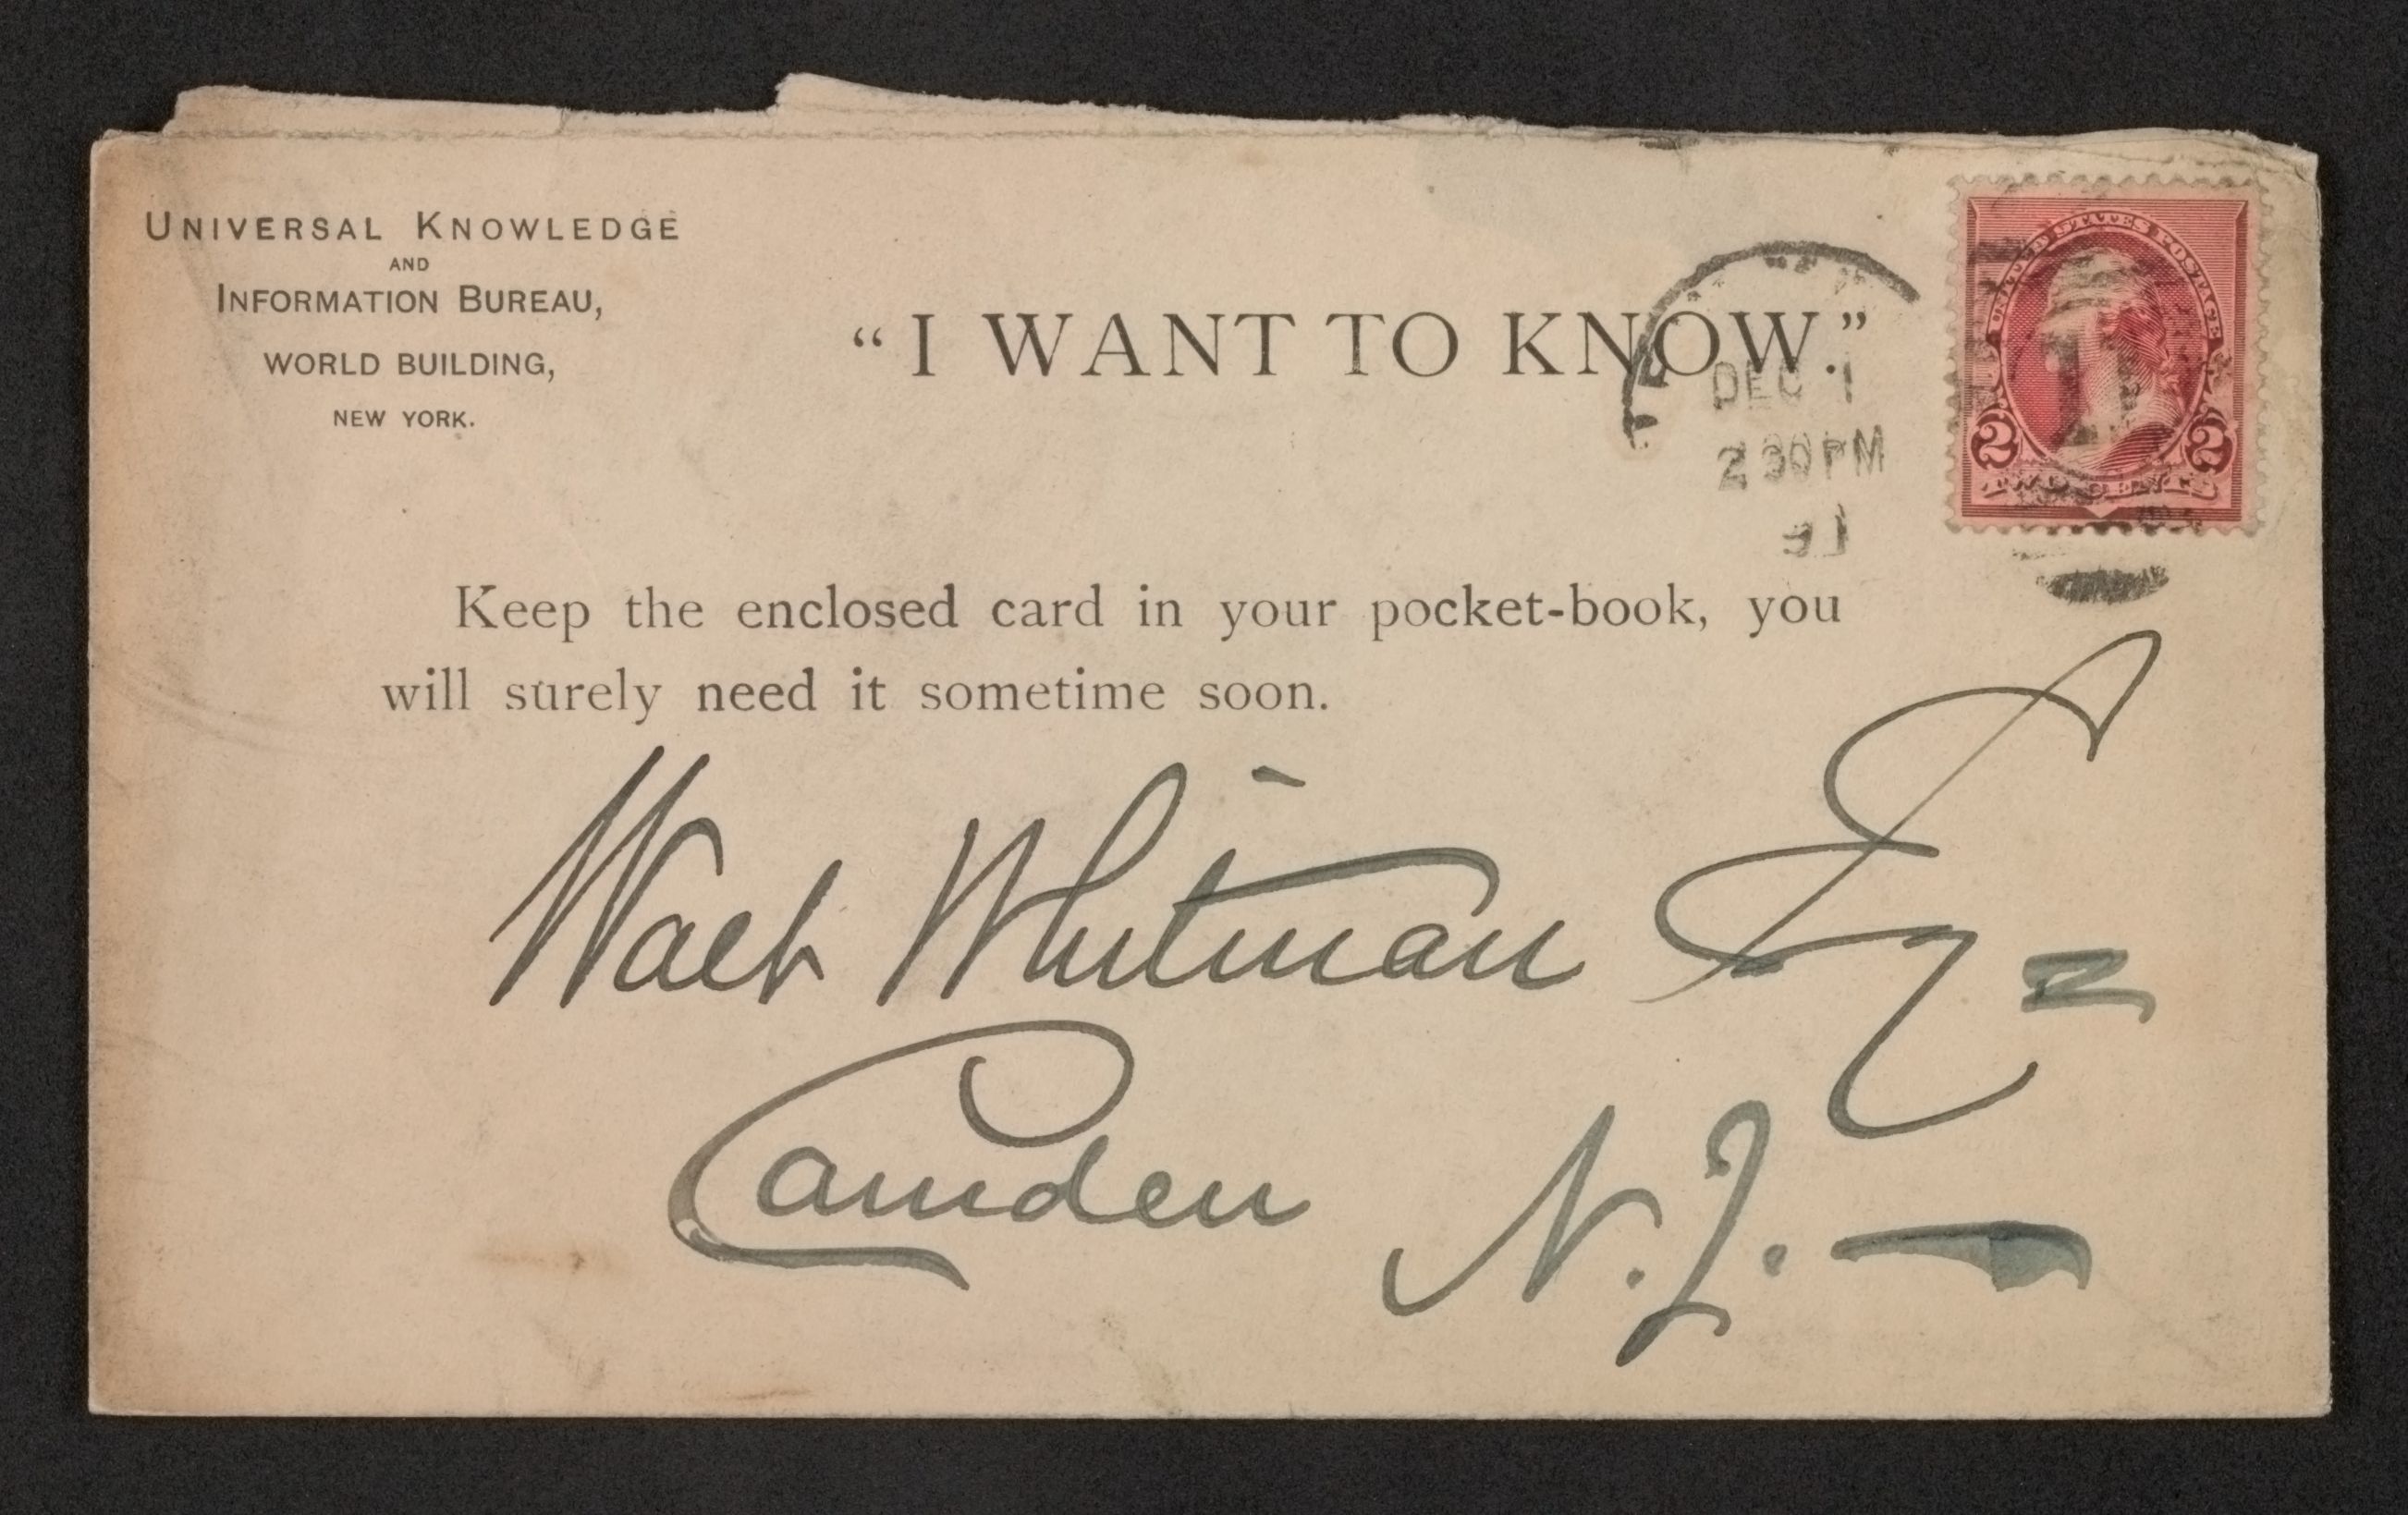 UNIVERSAL KNOWLEDGE
AND
INFORMATION BUREAU,
WORLD BUILDING,
NEW YORK.
"I WANT TO KNOW."
DEC 1
2 30 PM
91
UNITED STATES POSTAGE
2 2
TWO CENTS
Keep the enclosed card in your pocket-book, you
will surely need it sometime soon.
Walt Whitman Esq
Camden N.J.